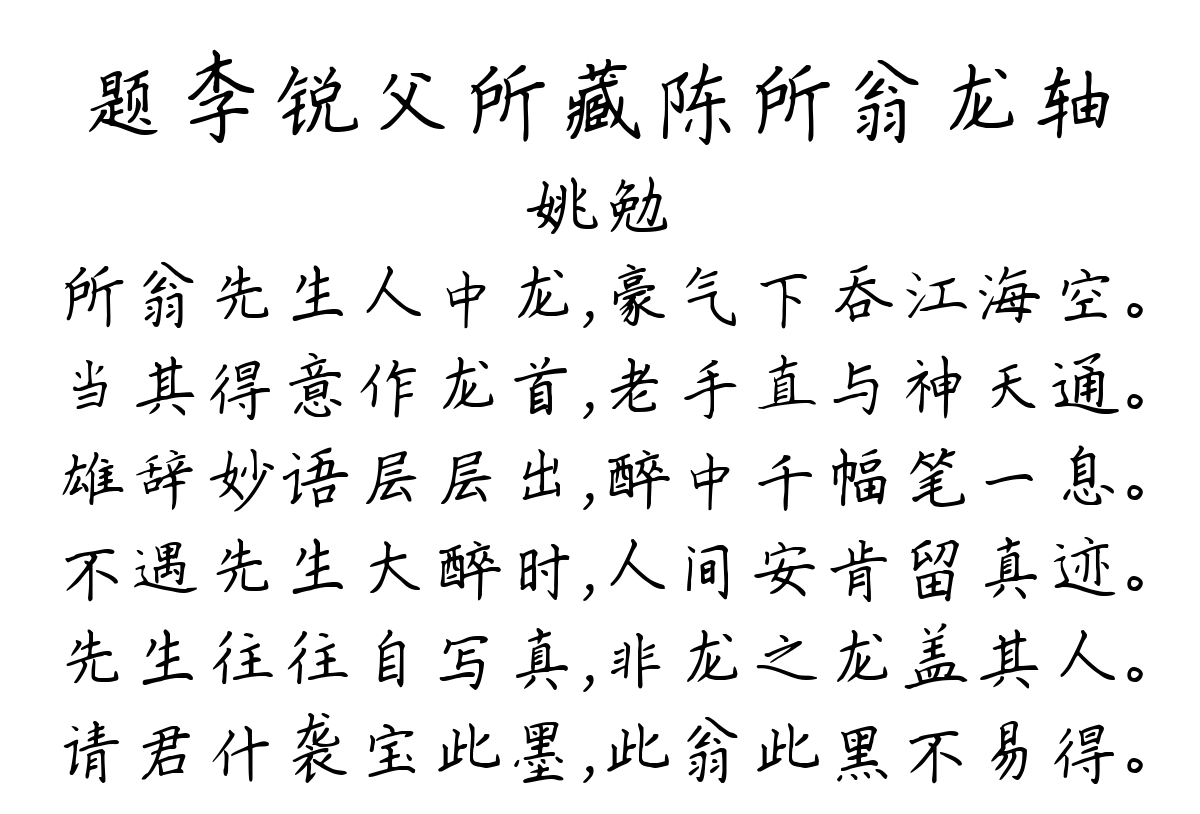 题李锐父所藏陈所翁龙轴
姚勉
所翁先生人中龙,豪气下吞江海空。
当其得意作龙首,老手直与神天通。
雄辞妙语层层出,醉中千幅笔一息。
不遇先生大醉时,人间安肯留真迹。
先生往往自写真,非龙之龙盖其人。
请君什袭宝此墨,此翁此黑不易得。